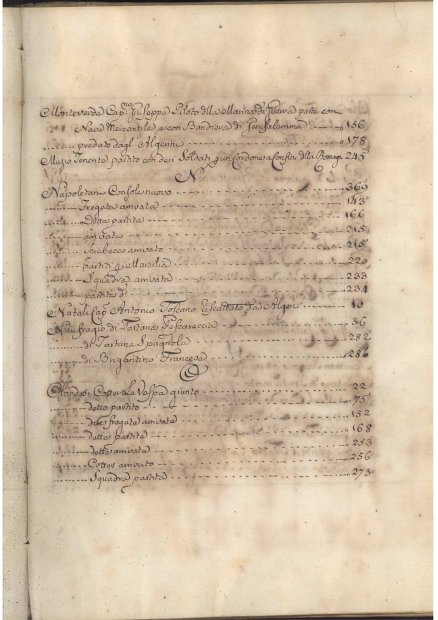 Monteverde Cap.no Giuseppe Piloto della Marina di Guerra parte con
Nave Mercantile, e con Bandiera di Gerusalemme ...156
predato dagl'Algerini ...178
Muzio Tenente partito con dieci Soldati per cordone a confini della 245
N
Napoletani Console nuovo ...369
Fregate arrivate ...143
Dette partite ...166
arrivata ...215
Sciabecco arrivato ...215
Partiti per Marsilia ...220
Squadra arrivata ...233
partita ...234
Natali Cap. Antonio Toscano riscattato da Algeri ...10
Naufragio di Tartana Pescareccia ...36
di Tartana Spagnola ...282
di Brigantino Francese ...286
O
Olandesi Cotter La Volpe giunto ...22
detto partito ...75
due fregate arrivate ...152
dette partite ...168
dette arrivate ...253
Cotter arrivato ...256
Squadra partita ...273